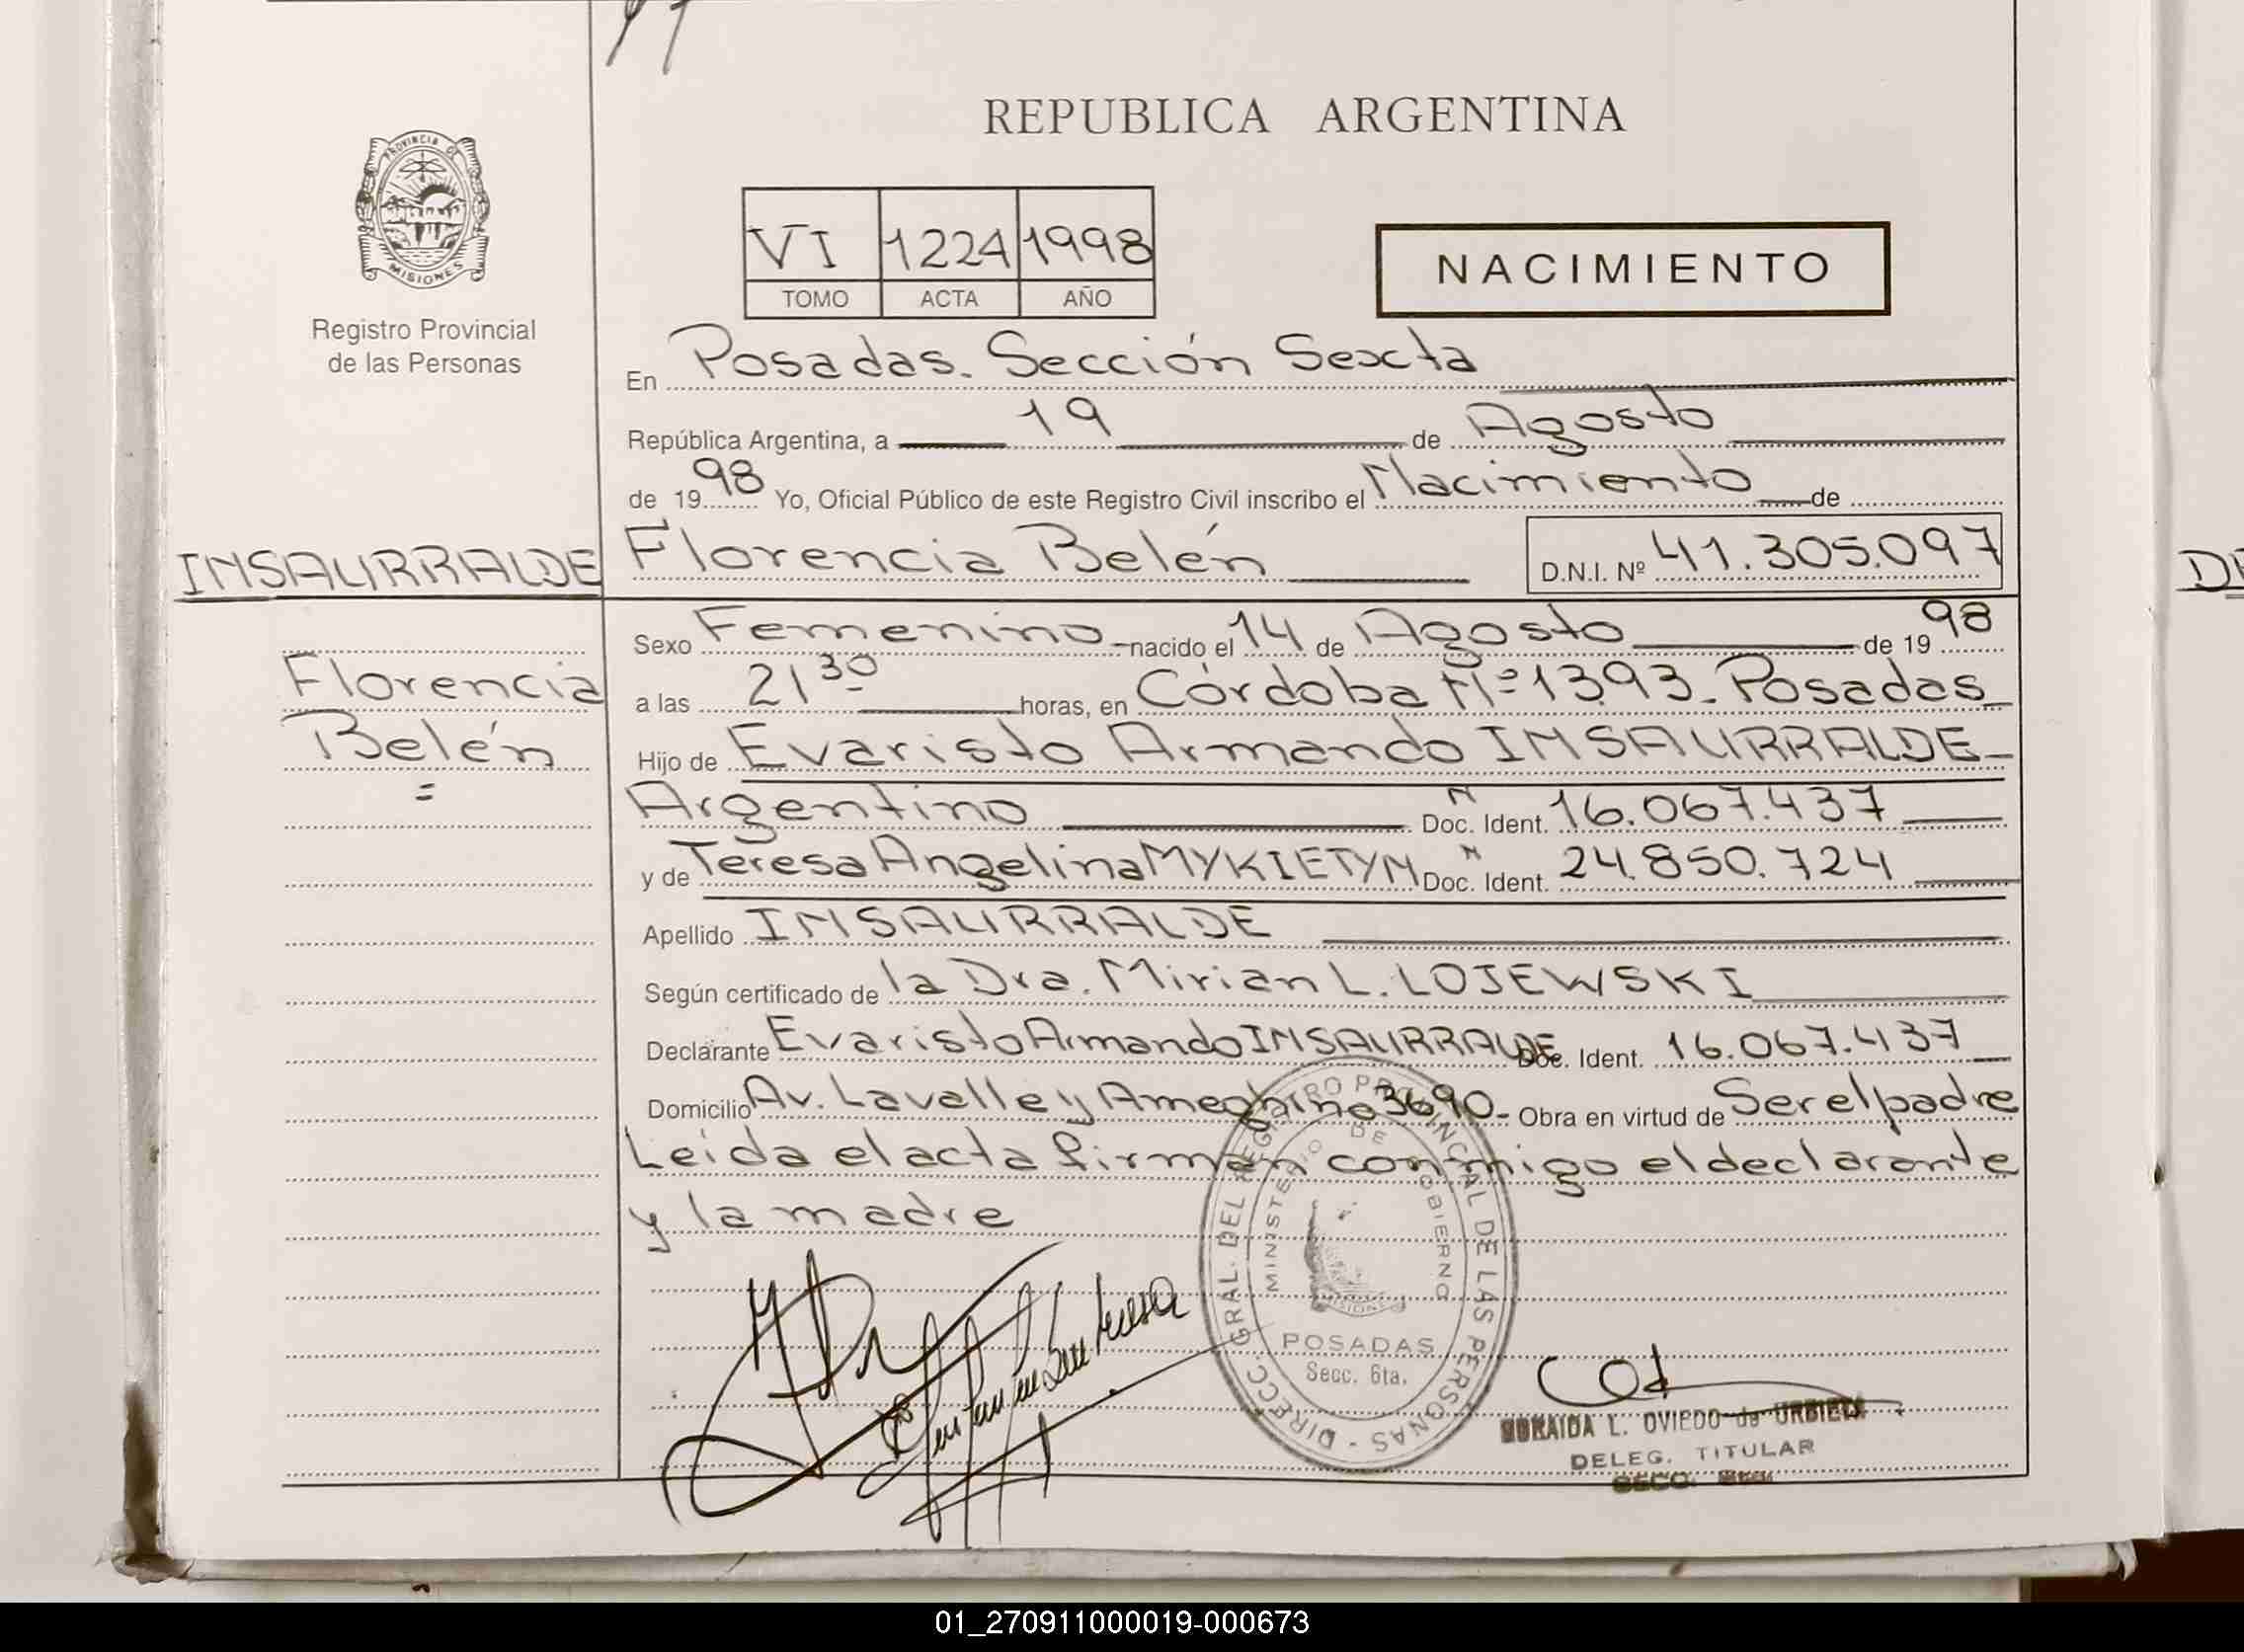 REPUBLICA ARGENTINA
PROVINCIA DE
MISIONES
Registro Provincial
de las Personas
VI 1224 1998
TOMO ACTA AÑO
NACIMIENTO
En Posadas. Sección Sexta
República Argentina, a 19 de Agosto
de 1998 Yo, Oficial Público de este Registro Civil inscribo el Nacimiento de
INSAURRALDE Florencia Belén D.N.I. Nº 41.305.097
Sexo Femenino nacido el 14 de Agosto de 1998
Florencia
Belén
=
a las 21 30 horas, en Córdoba Nº 1393. Posadas
Hijo de Evaristo Armando INSAURRALDE
Argentino N Doc. Ident. 16.067.437
y de Teresa Angelina MYKIETYN N Doc. Ident. 24.850.724
Apellido INSAURRALDE
Según certificado de la Dra. Mirian L. LOJEWSKI
Declarante Evaristo Armando INSAURRALDE Doc. Ident. 16.067.437
Domicilio Av. Lavalle y Ameghino 3690- Obra en virtud de Ser el padre
Leída el acta firman conmigo el declarante
y la madre
DIRECC. GRAL. DEL REGISTRO PROVINCIAL DE LAS PERSONAS -
MINISTERIO DE GOBIERNO
MISIONES
POSADAS
Secc. 6ta.
L. OVIEDO de URBIETA
DELEG. TITULAR
SECC. 6ta.
01_270911000019-000673